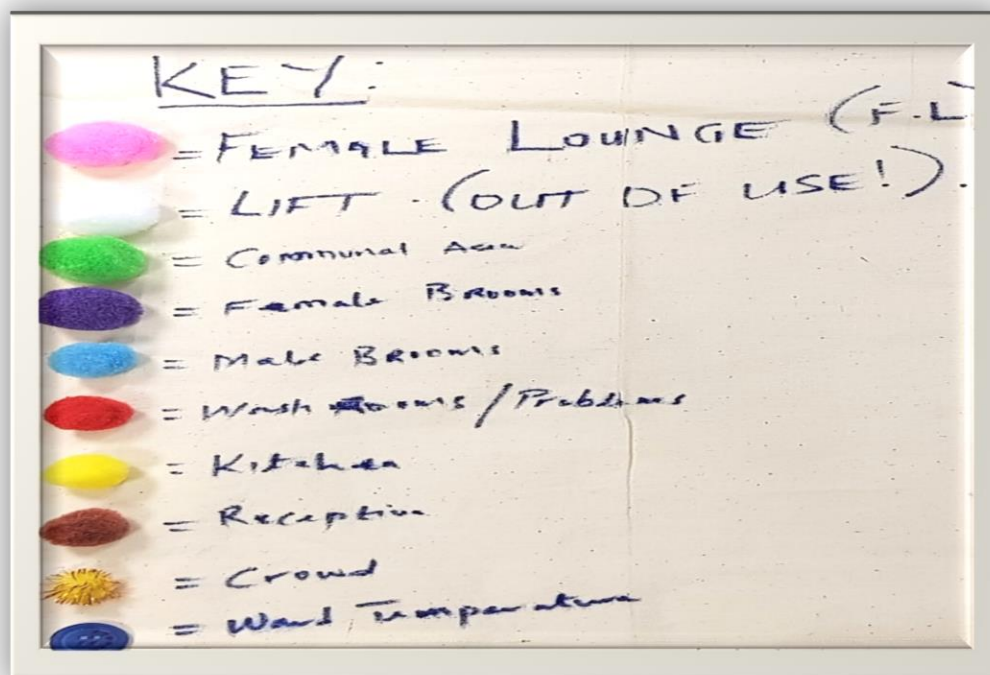 KEY:
= FEMALE LOUNGE (F.L)
= LIFT. (OUT OF USE!).
= Communal Area
= Female BRooms
= Male BRooms
= Wash Rooms / Problems
= Kitchen
= Reception
= Crowd
= Ward Temperature